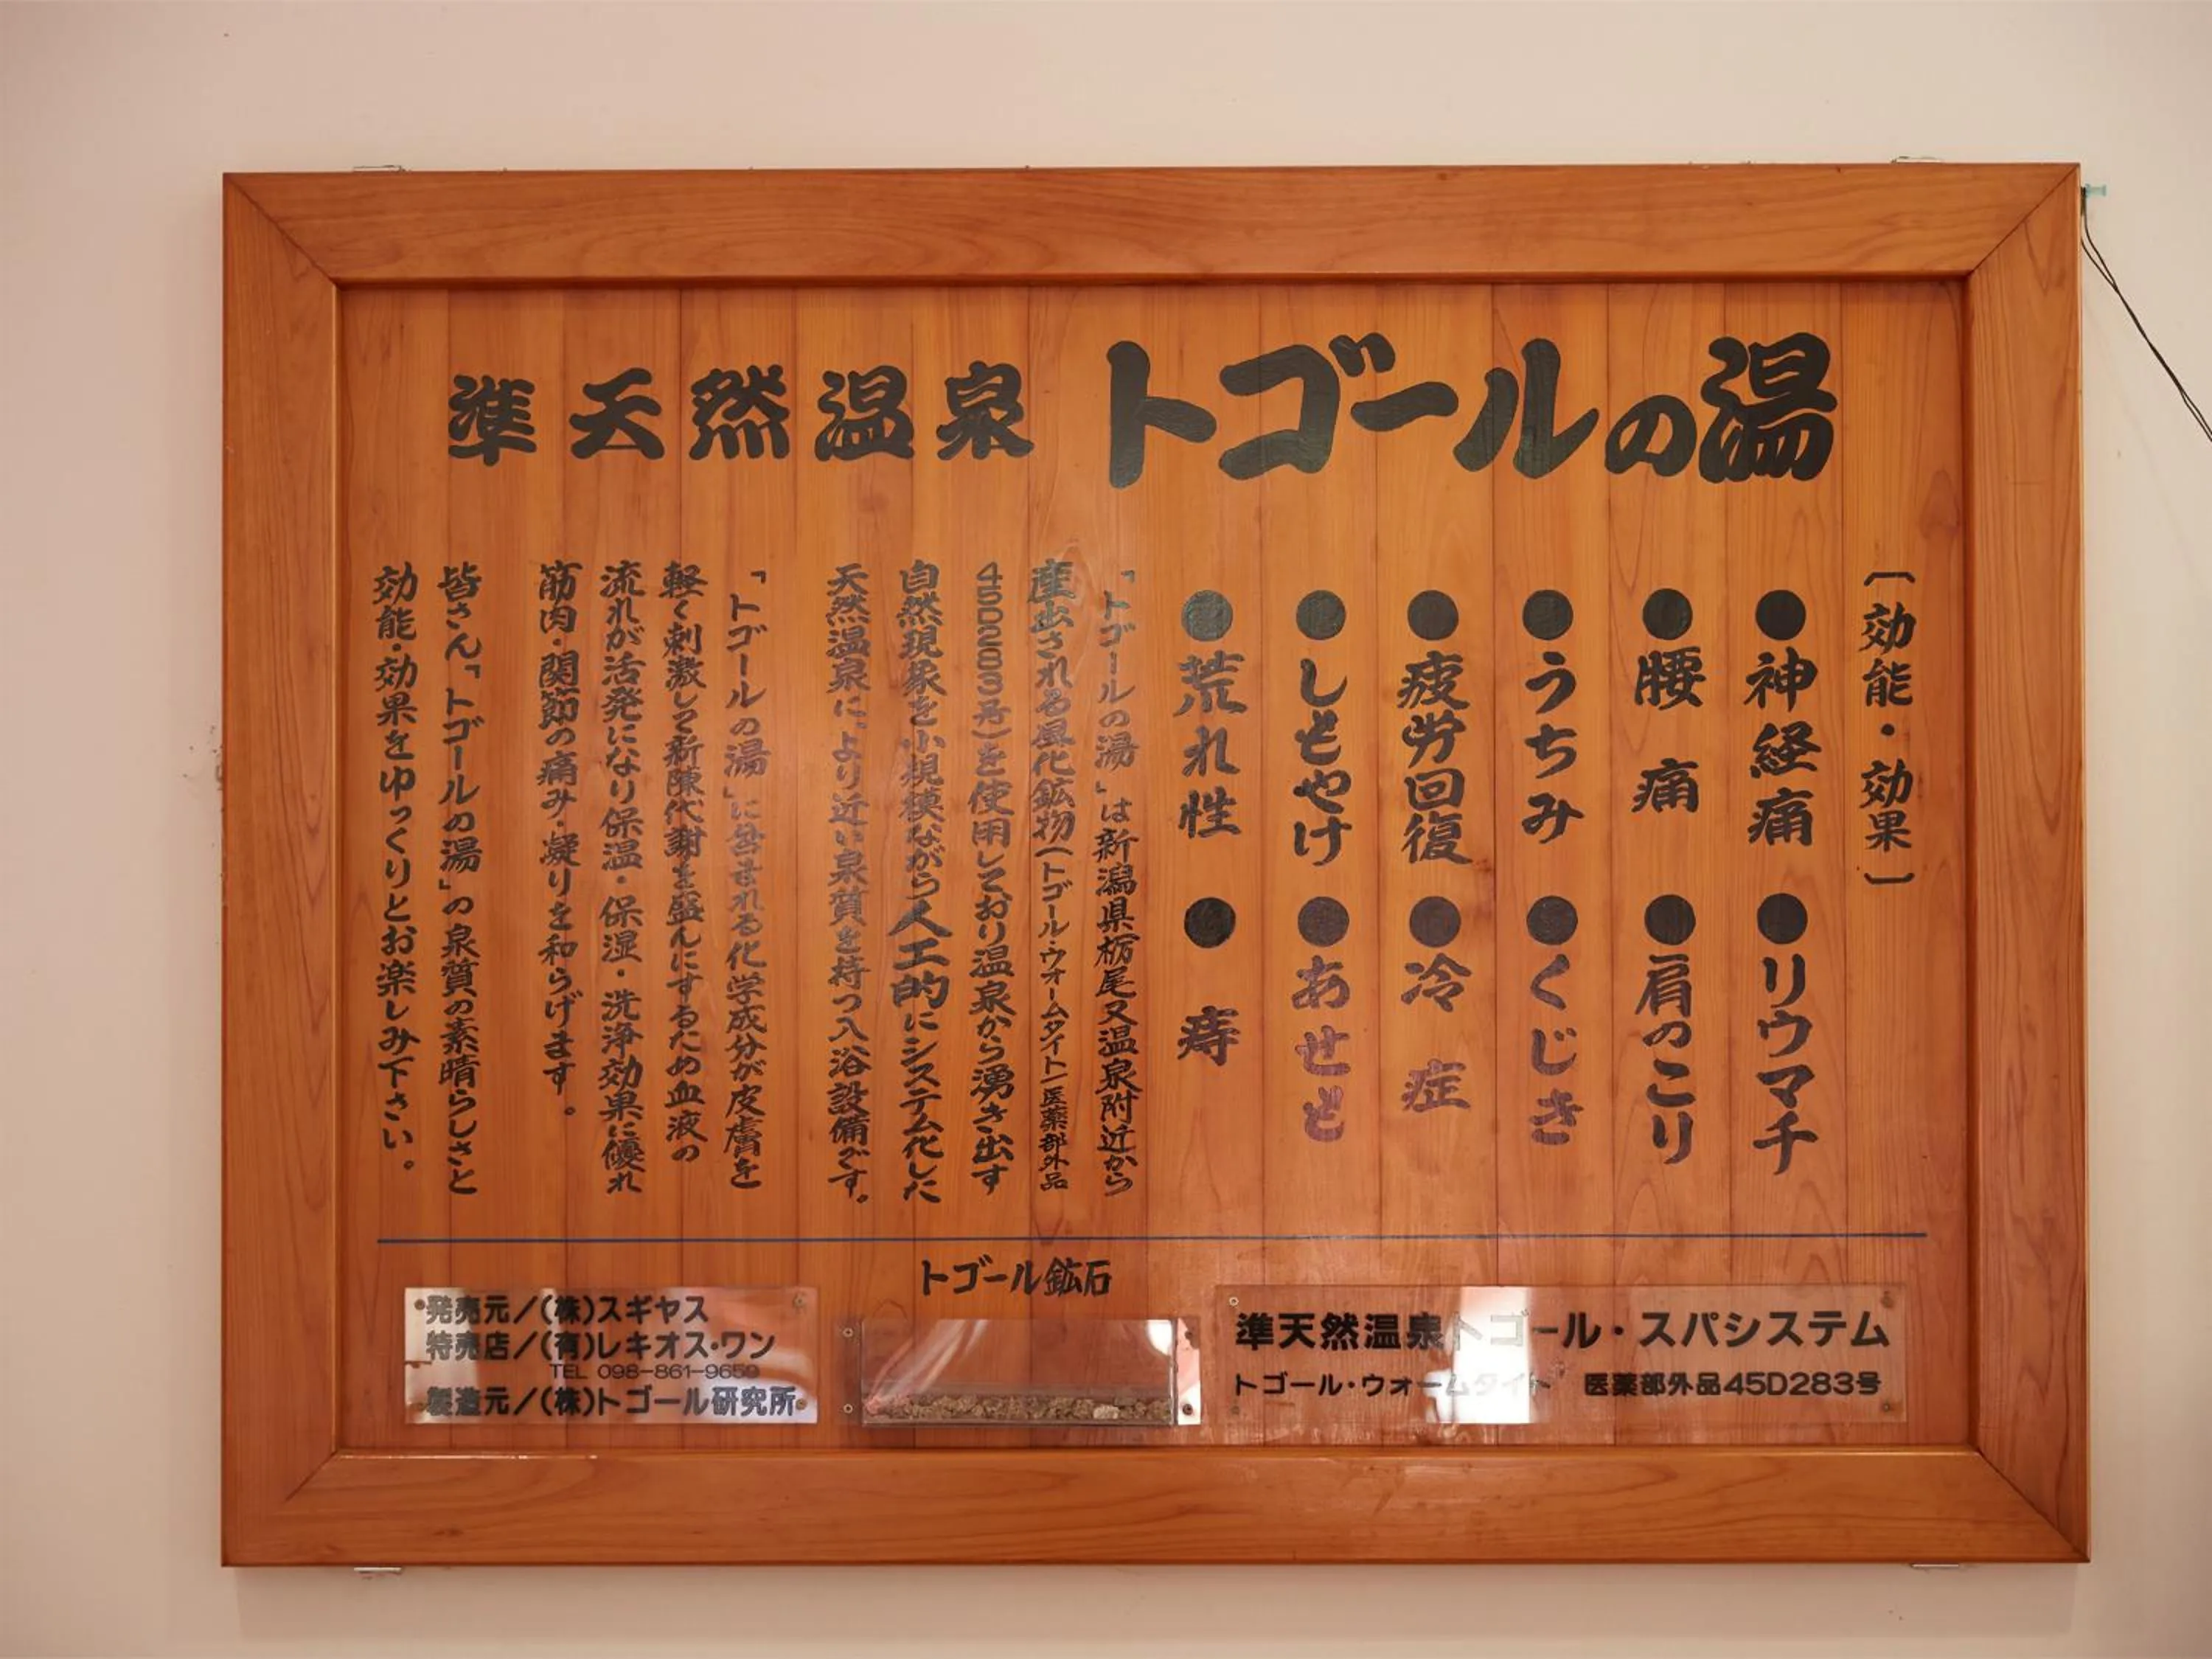 準天然温泉 トゴールの湯
〔効能・効果〕
●神経痛 ●リウマチ
●腰痛 ●肩のこり
●うちみ ●くじき
●疲労回復 ●冷症
●しもやけ ●あせも
●荒れ性 ●痔
「トゴールの湯」は新潟県栃尾又温泉附近から
産出される風化鉱物(トゴール・ウォームタイト)医薬部外品
45D283号)を使用しており温泉から湧き出す
自然現象を小規模ながら人工的にシステム化した
天然温泉に、より近い泉質を持つ入浴設備です。
「トゴールの湯」に含まれる化学成分が皮膚を
軽く刺激して新陳代謝を盛んにするため血液の
流れが活発になり保温・保湿・洗浄効果に優れ
筋肉・関節の痛み・凝りを和らげます。
皆さん「トゴールの湯」の泉質の素晴らしさと
効能・効果をゆっくりとお楽しみ下さい。
トゴール鉱石
発売元/(株)スギヤス
特売店/(有)レキオス・ワン
TEL 098-861-9659
製造元/(株)トゴール研究所
準天然温泉トゴール・スパシステム
トゴール・ウォームタイト 医薬部外品45D283号